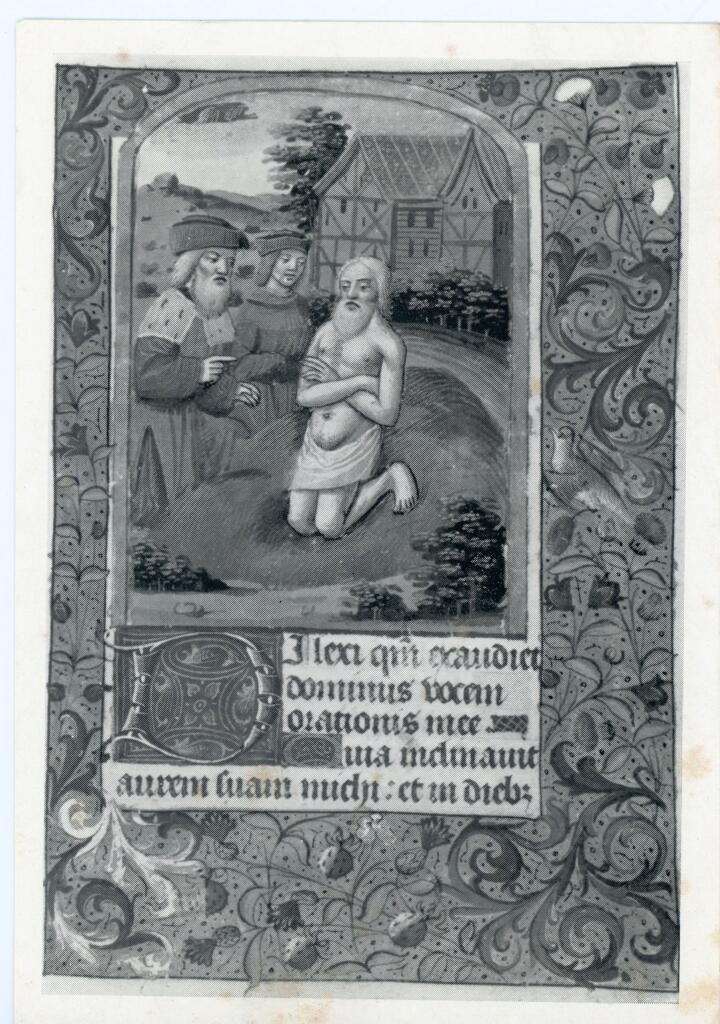 Dilexi qm̅ exaudiet
dominus vocem
orationis mee
Quia inclinauit
aurem suam michi : et in dieb;